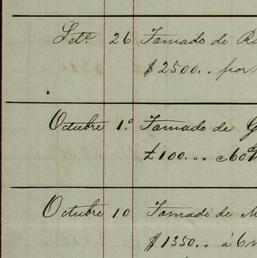 Setᵉ 26 Tomado de
$ 2500.. por
Octubre 1.º Tomado de G
£ 100...
Octubre 10 Tomado de M
$ 1350.. á 6 m